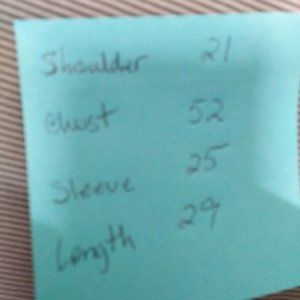 Shoulder 21
Chest 52
Sleeve 25
Length 29